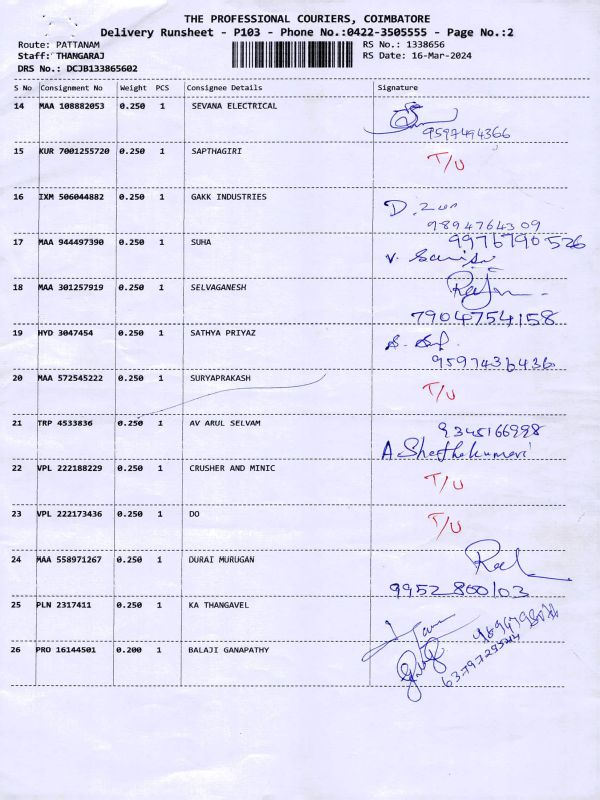 THE PROFESSIONAL COURIERS, COIMBATORE
Delivery Runsheet - P103 - Phone No.:0422-3505555 - Page No.:2
Route: PATTANAM RS No.: 1338656
Staff: THANGARAJ RS Date: 16-Mar-2024
DRS No.: DCJB133865602
S No Consignment No Weight PCS Consignee Details Signature
14 MAA 108882053 0.250 1 SEVANA ELECTRICAL
9597494366
15 KUR 7001255720 0.250 1 SAPTHAGIRI T/U
16 IXM 506044882 0.250 1 GAKK INDUSTRIES
9894764309
17 MAA 944497390 0.250 1 SUHA 9976790526
18 MAA 301257919 0.250 1 SELVAGANESH
7904754158
19 HYD 3047454 0.250 1 SATHYA PRIYAZ
9597436436
20 MAA 572545222 0.250 1 SURYAPRAKASH T/U
21 TRP 4533836 0.250 1 AV ARUL SELVAM 9345166998
22 VPL 222188229 0.250 1 CRUSHER AND MINIC T/U
23 VPL 222173436 0.250 1 DO T/U
24 MAA 558971267 0.250 1 DURAI MURUGAN
25 PLN 2317411 0.250 1 KA THANGAVEL
26 PRO 16144501 0.200 1 BALAJI GANAPATHY